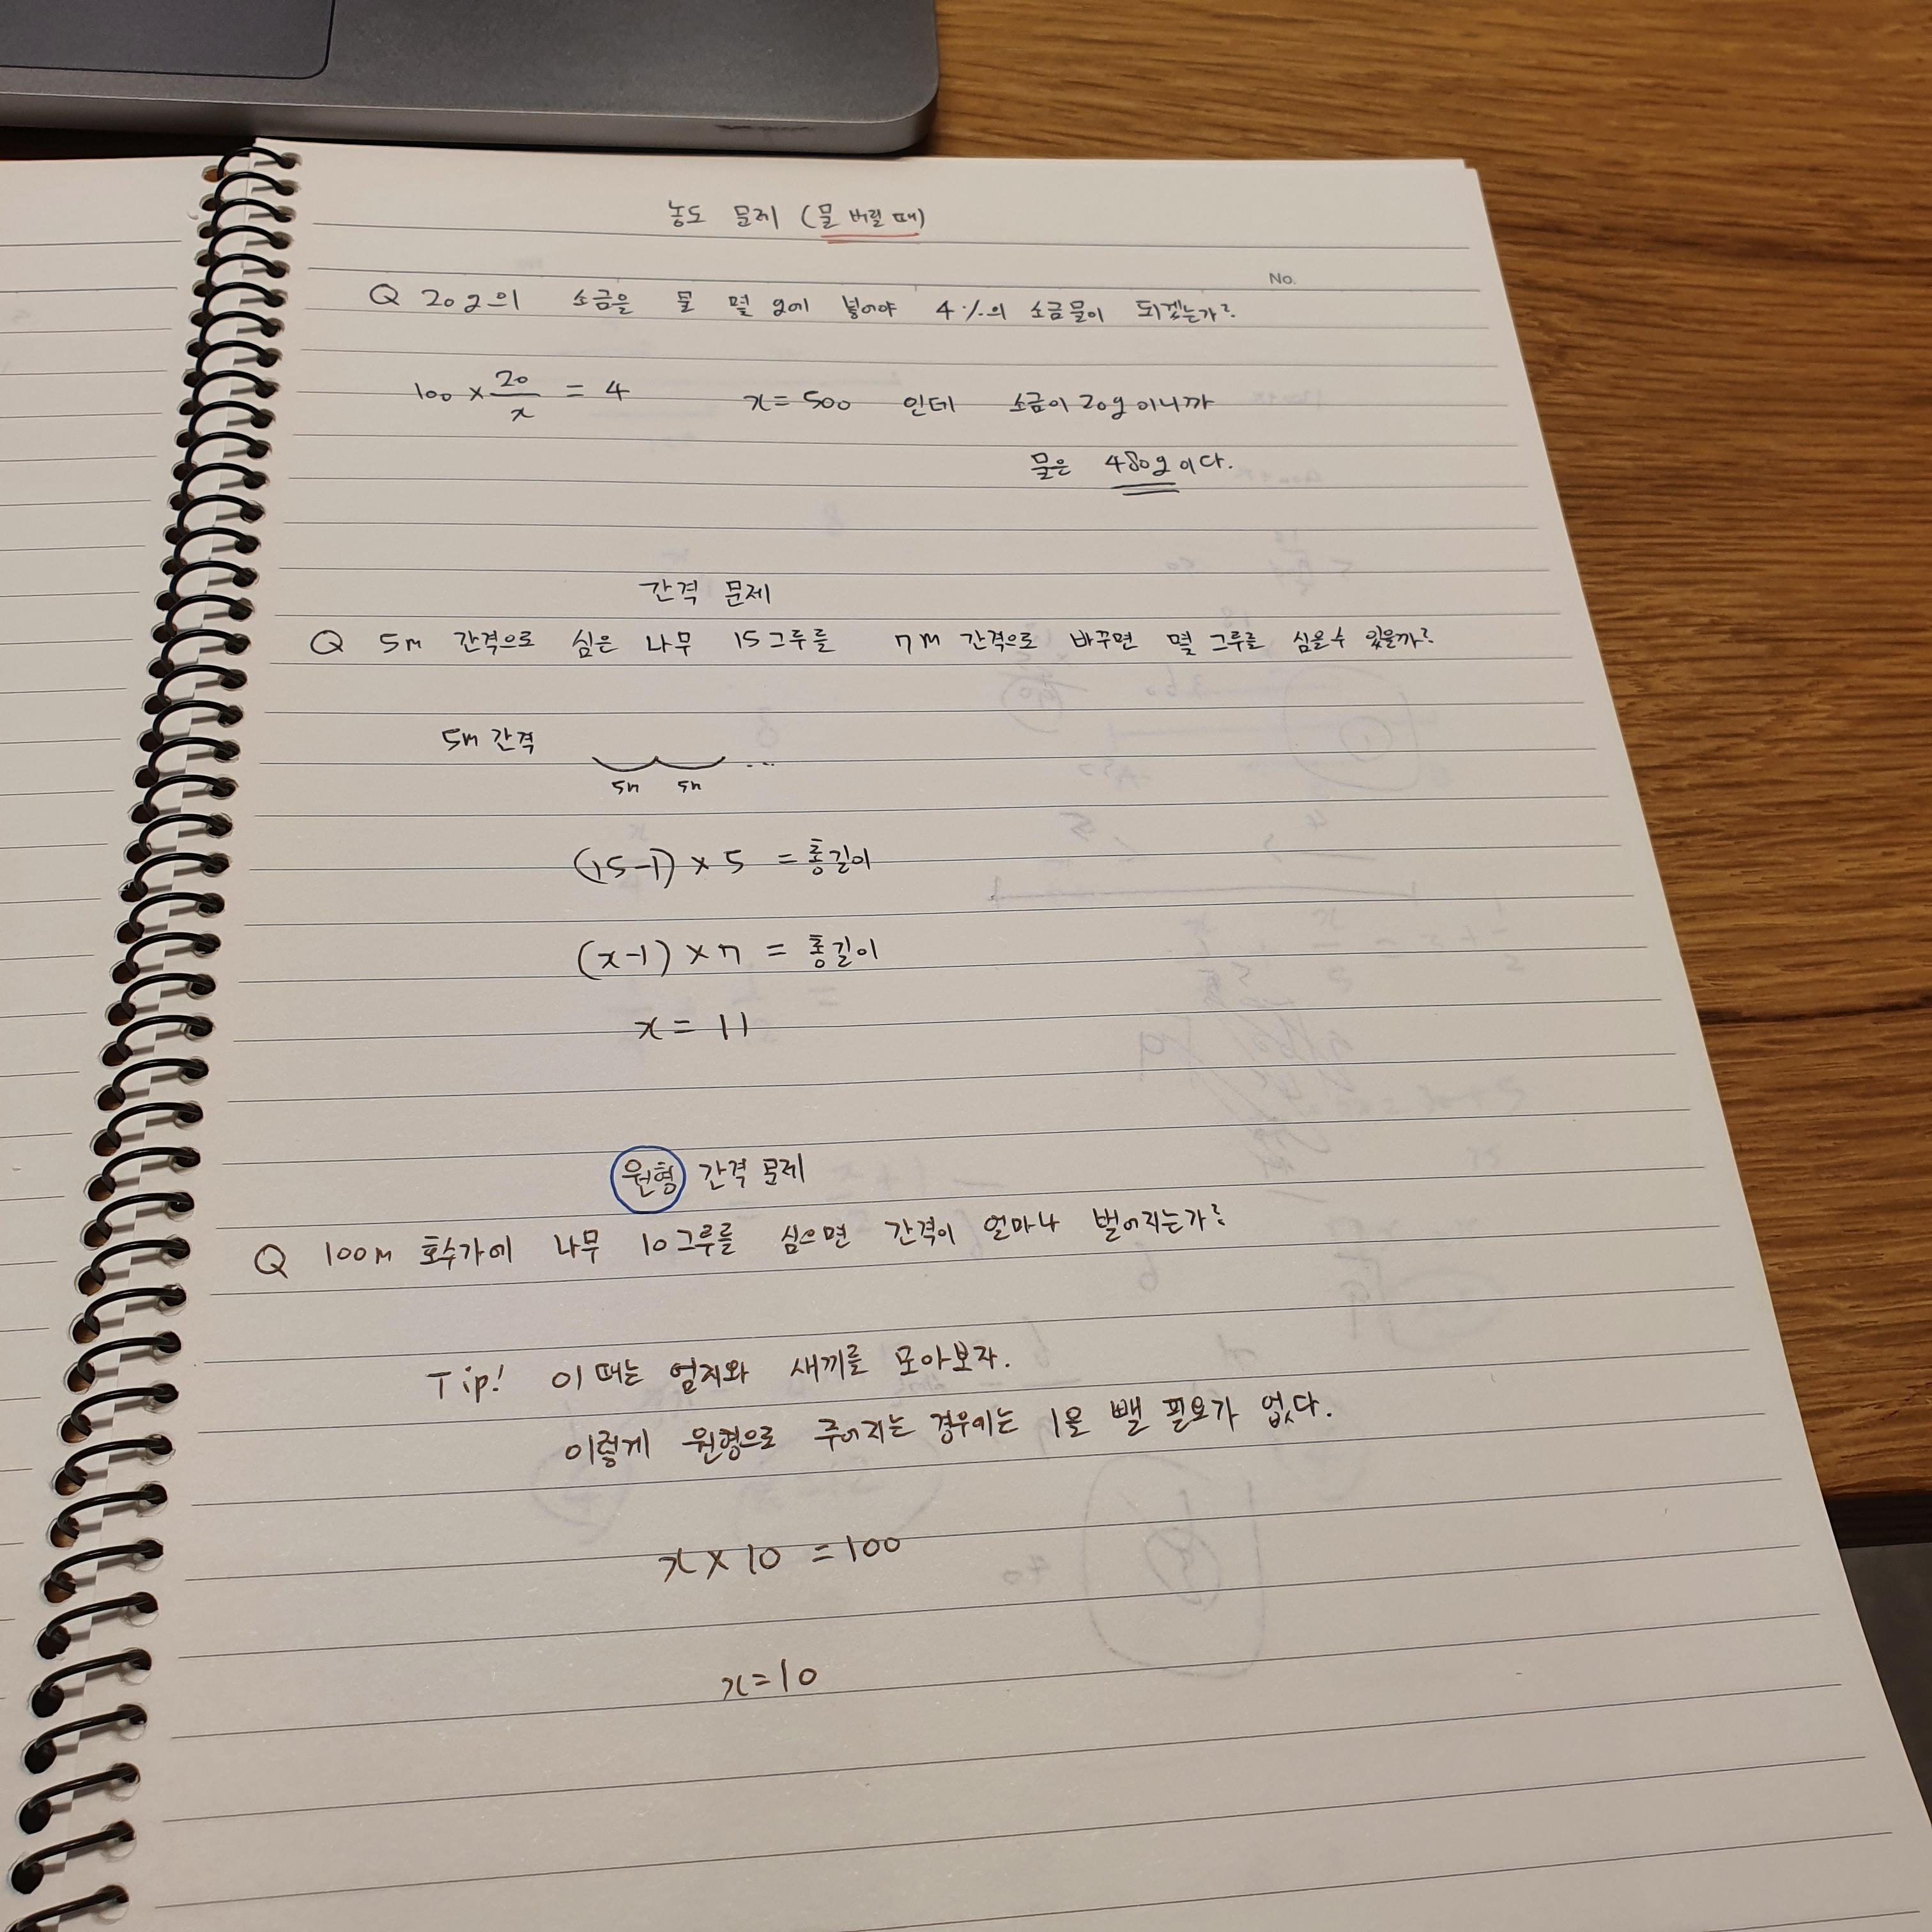 농도 문제 (물 버릴 때)
No.
Q 20g의 소금을 물 몇 g에 넣어야 4%의 소금물이 되겠는가?
100 × 20/x = 4 x = 500 인데 소금이 20g 이니까
물은 480g 이다.
간격 문제
Q 5m 간격으로 심은 나무 15그루를 7m 간격으로 바꾸면 몇 그루를 심을 수 있을까?
5m 간격
5m 5m ...
(15-1) × 5 = 총길이
(x-1) × 7 = 총길이
x = 11
원형 간격 문제
Q 100m 호수가에 나무 10그루를 심으면 간격이 얼마나 벌어지는가?
Tip! 이 때는 엄지와 새끼를 모아보자.
이렇게 원형으로 주어지는 경우에는 1을 뺄 필요가 없다.
x × 10 = 100
x = 10